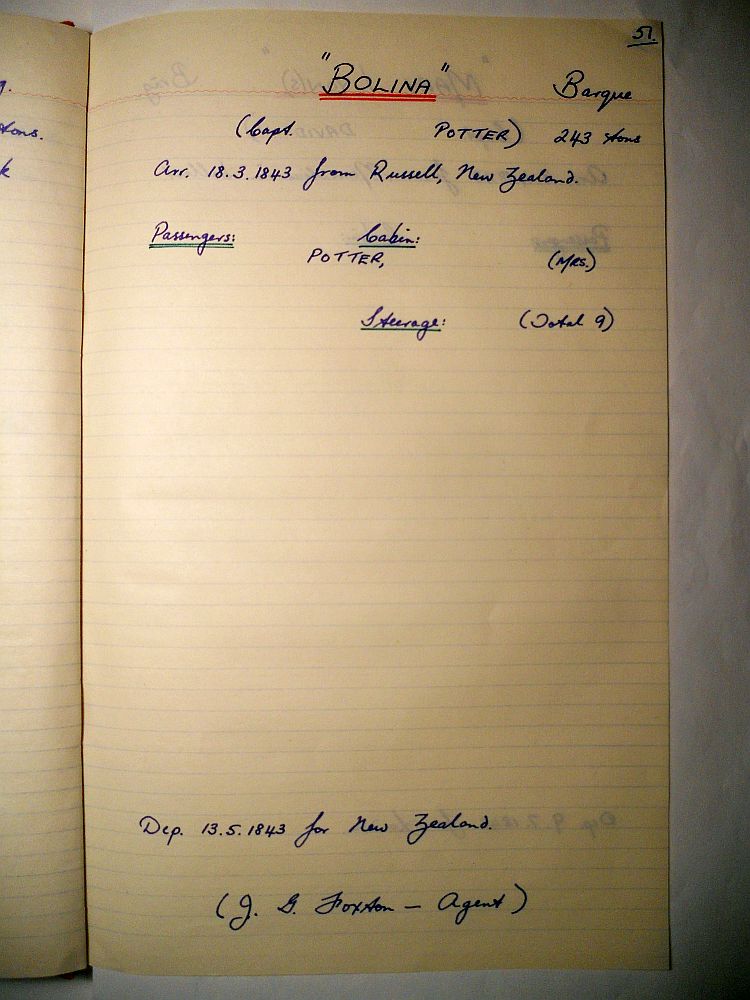 51.
"BOLINA" Barque
(Capt. POTTER) 243 tons
Arr. 18.3.1843 from Russell, New Zealand.
Passengers: Cabin:
POTTER, (MRS.)
Steerage: (Total 9)
Dep. 13.5.1843 for New Zealand.
(J. G. Foxton — Agent)
tons.
k